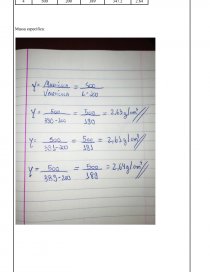 4 500 200 389 347.2 2.64
Masa específica:
γ = Mseco/Vseco = 500/L-200
γ = 500/390-200 = 500/190 = 2,63 g/cm³
γ = 500/391-200 = 500/191 = 2,61 g/cm³
γ = 500/389-200 = 500/189 = 2,64 g/cm³